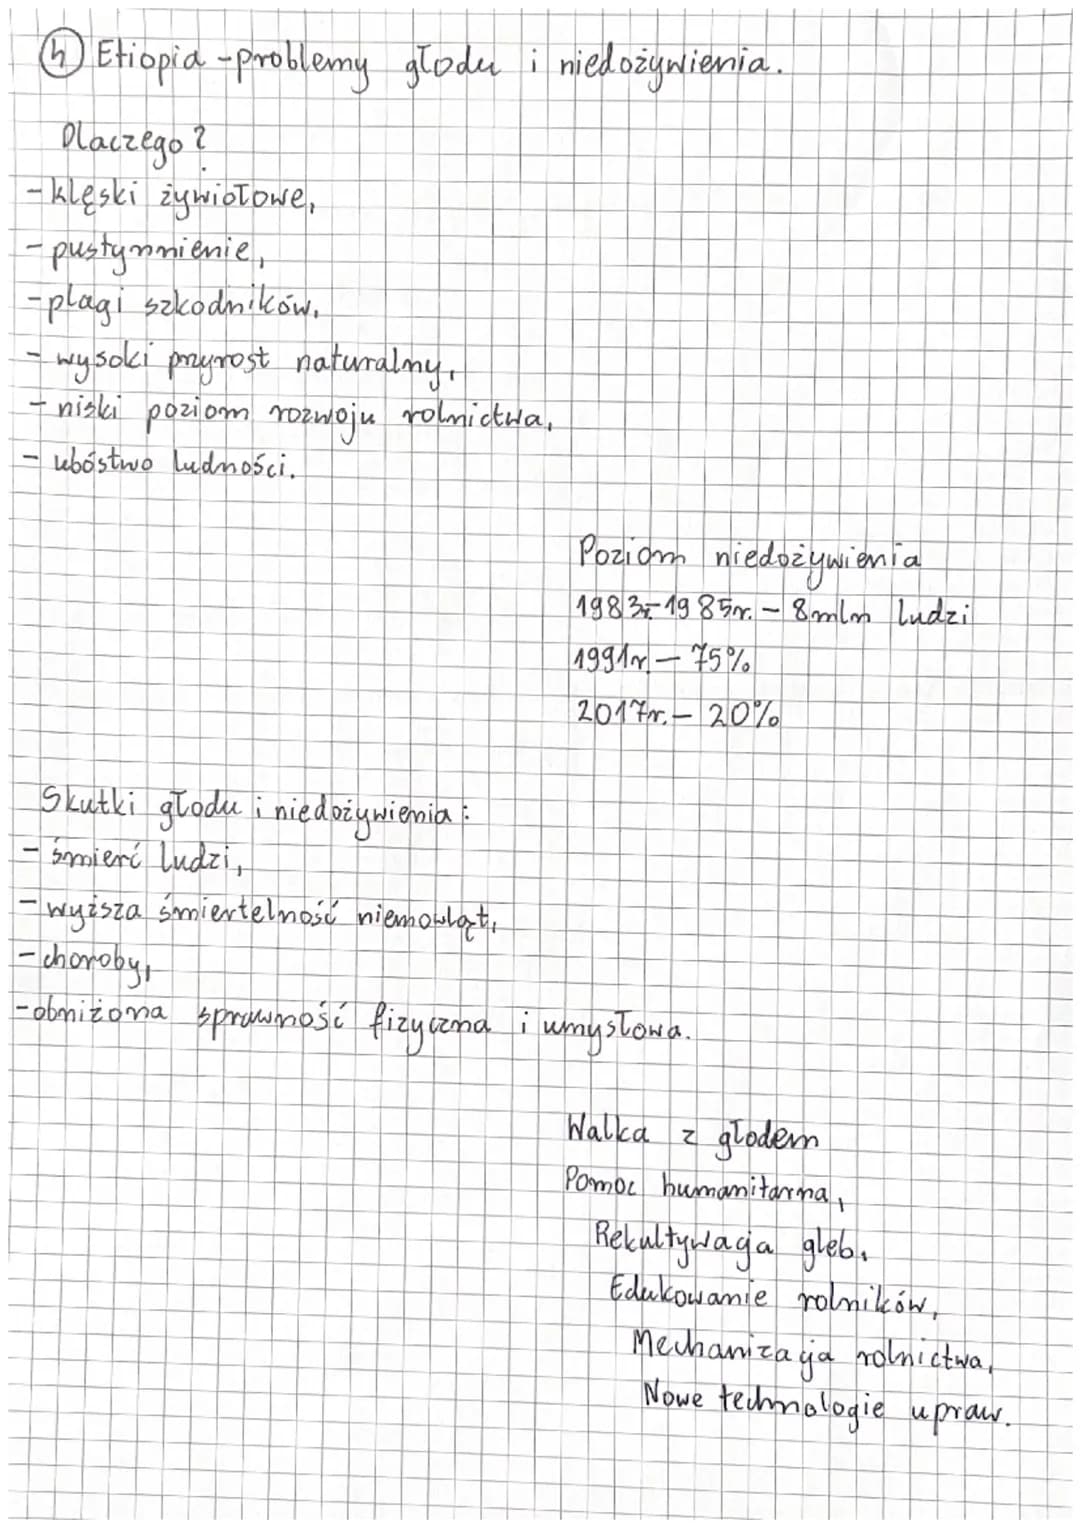 4 Etiopia - problemy głodu i niedożywienia.
Dlaczego?
- klęski żywiołowe,
- pustynnienie,
- plagi szkodników,
- wysoki przyrost naturalny,
- niski poziom rozwoju rolnictwa,
- ubóstwo ludności.
Poziom niedożywienia
1983r-1985r. - 8mln ludzi
1991r. - 75%
2017r. - 20%
Skutki głodu i niedożywienia:
- śmierć ludzi,
- wyższa śmiertelność niemowląt,
- choroby,
- obniżona sprawność fizyczna i umysłowa.
Walka z głodem
Pomoc humanitarna,
Rekultywacja gleb,
Edukowanie rolników,
Mechanizacja rolnictwa,
Nowe technologie upraw.